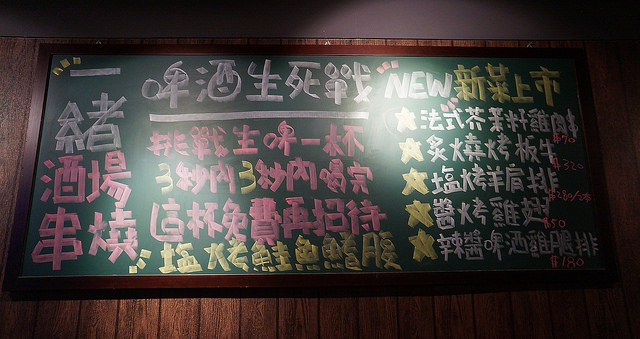 一緒
酒場
串燒
啤酒生死戰
挑戰生啤一杯
3秒內3秒內喝完
這杯免費再招待
塩烤鮭魚鰭腹
NEW新菜上市
法式芥茉籽雞肉串
$70
炙燒烤板牛
$320
塩烤羊肩排
醬烤雞翅
$50
辣醬啤酒雞腿排
$180